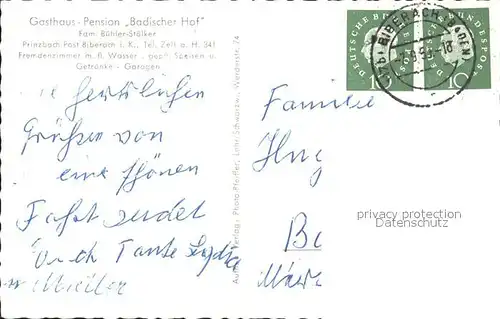 Gasthaus - Pension „Badischer Hof"
Fam. Bühler-Stölker
Prinzbach Post Biberach i. K., Tel. Zell a. H. 341
Fremdenzimmer m. fl. Wasser, gepfl. Speisen u.
Getränke - Garagen
herzlichen
Grüßen von
eine schönen
Fahrt sendet
Euch Tante
Familie
Hug
Aufn. u. Verlag: Photo-Pfeiffer, Lahr/Schwarzw., Wergerstr. 74
DEUTSCHE BUNDESPOST
10
DEUTSCHE BUNDESPOST
10
BIBERACH (BADEN)
privacy protection
Datenschutz